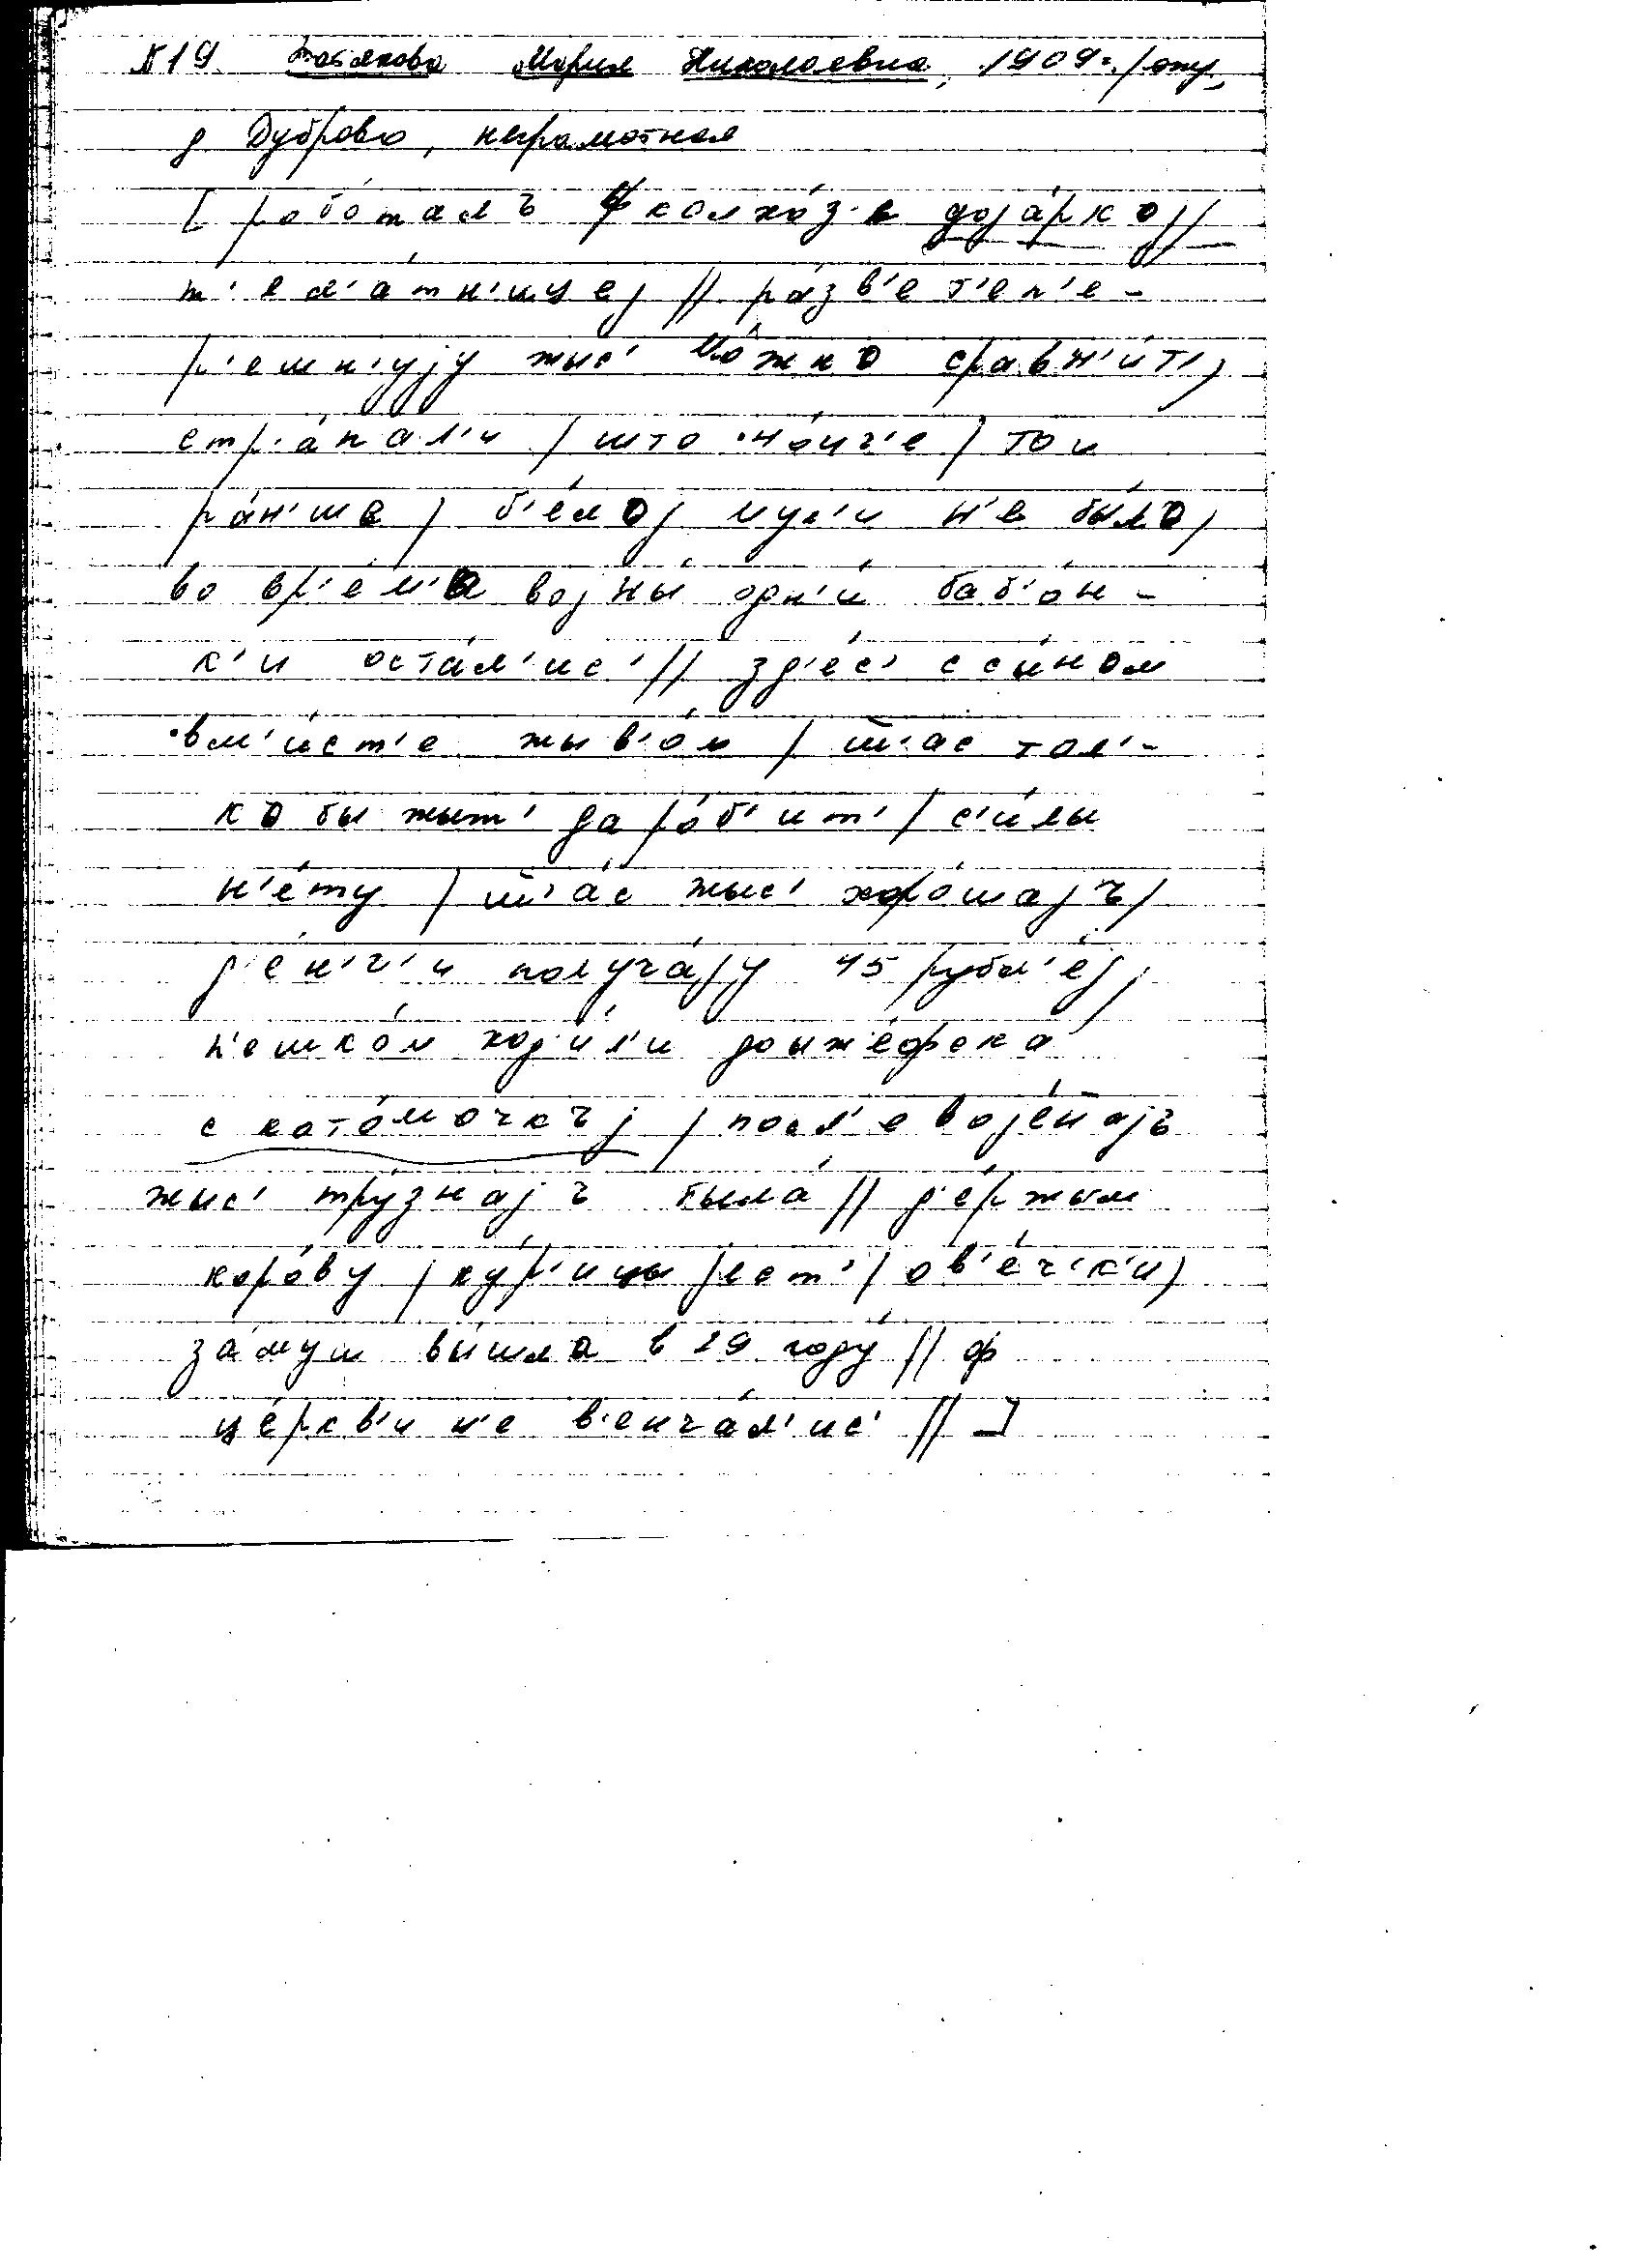 №19. Мария Николаевна, 1909г.
д. Дуброво, неграмотная
[ рабо́талъ ф колхо́з'е доја́ркој//
т'ел'а́тн'ицеј // ра́зв'е т'еп'е-
р'ешн'ују жыс' мо́жно сравн'и́т'/
стр'а́пал'и / што но́нч'е / то и
ра́н'ше / б'е́лој мук'и́ н'е бы́ло/
во вр'е́м'а војны́ одн'и́ баб'о́н-
к'и оста́л'ис' // зд'е́с' с сы́ном
вм'и́ст'е жыв'о́м / ш':ас тол'-
ко бы жыт' да ро́б'ит' / с'и́лы
н'е́ту / ш':а́с жыс' хоро́шајъ/
д'е́н'г'и получа́ју 45 рубл'е́ј/
п'ешко́м ход'и́л'и до ыже́фска
с като́мочкъј / посл'евоје́најъ
жыс' тру́знајъ была́ // д'е́ржым
коро́ву / ку́р'ицы јест' / ов'е́ч'к'и/
за́муш вы́шла в 29 году́ // ф
це́ркв'и н'е в'енча́л'ис' // ]